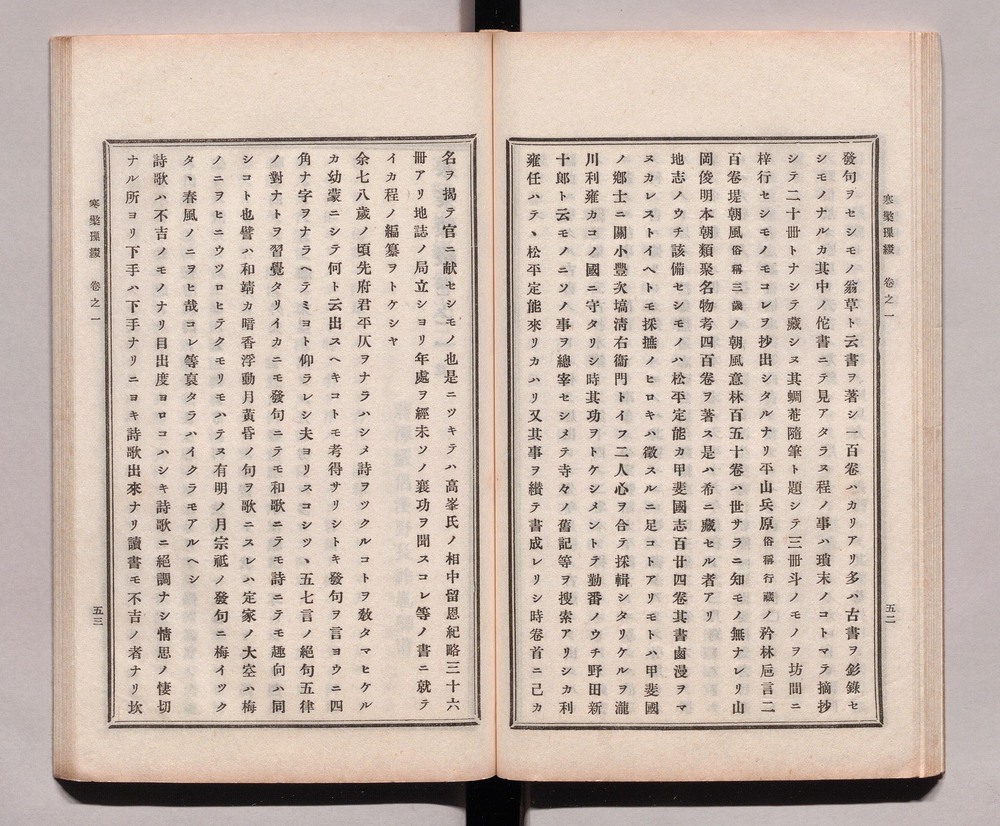 寒檠璅綴　卷之一
五二
發句ヲセシモノ翁草ト云書ヲ著シ一百卷ハカリアリ多ハ古書ヲ影錄セ
シモノナルカ其中ノ佗書ニテ見アタラヌ程ノ事ハ瑣末ノコトマテ摘抄
シテ二十冊トナシテ藏シヌ其蜩菴隨筆ト題シテ三冊斗ノモノヲ坊間ニ
梓行セシモノモコレヲ抄出シタルナリ平山兵原俗稱行藏ノ矜林巵言二
百卷堤朝風俗稱三ノ朝風意林百五十卷ハ世サラニ知モノ無ナレリ山
岡俊明本朝類聚名物考四百卷ヲ著ス是ハ希ニ藏セル者アリ
地志ノウチ該備セシモノハ松平定能カ甲斐國志百廿四卷其書鹵漫ヲマ
ヌカレストイヘトモ採摭ノヒロキハ徵スルニ足コトアリモトハ甲斐國
ノ鄕士ニ關小豐次塙淸右衞門トイフ二人心ヲ合テ採輯シタリケルヲ瀧
川利雍カコノ國ニ守タリシ時其功ヲトケシメントテ勤番ノウチ野田新
十郞ト云モノニソノ事ヲ總宰セシメテ寺々ノ舊記等ヲ搜索アリシカ利
雍任ハテヽ松平定能來リカハリ又其事ヲ續テ書成レリシ時卷首ニ己カ
名ヲ揭テ官ニ献セシモノ也是ニツキテハ高峯氏ノ相中留恩紀略三十六
冊アリ地誌ノ局立シヨリ年處ヲ經未ソノ襄功ヲ聞スコレ等ノ書ニ就テ
イカ程ノ編纂ヲトケシヤ
余七八歲ノ頃先府君平仄ヲナラハシメ詩ヲツクルコトヲ敎タマヒケル
カ幼蒙ニシテ何ト云出スヘキコトモ考得サリシトキ發句ヲ言ヨウニ四
角ナ字ヲナラヘテミヨト仰ラレシ夫ヨリスコシツヽ五七言ノ絕句五律
ノ對ナトヲ習覺タリイカニモ發句ニテモ和歌ニテモ詩ニテモ趣向ハ同
シコト也譬ハ和靖カ暗香浮動月黃昏ノ句ヲ歌ニスレハ定家ノ大空ハ梅
ノニヲヒニウツロヒテクモリモハテヌ有明ノ月宗祗ノ發句ニ梅イツク
タヽ春風ノニヲヒ哉コレ等哀タラハイクラモアルヘシ
詩歌ハ不吉ノモノナリ目出度ヨロコハシキ詩歌ニ絕調ナシ情思ノ悽切
ナル所ヨリ下手ハ下手ナリニヨキ詩歌出來ナリ讀書モ不吉ノ者ナリ坎
寒檠璅綴　卷之一
五三